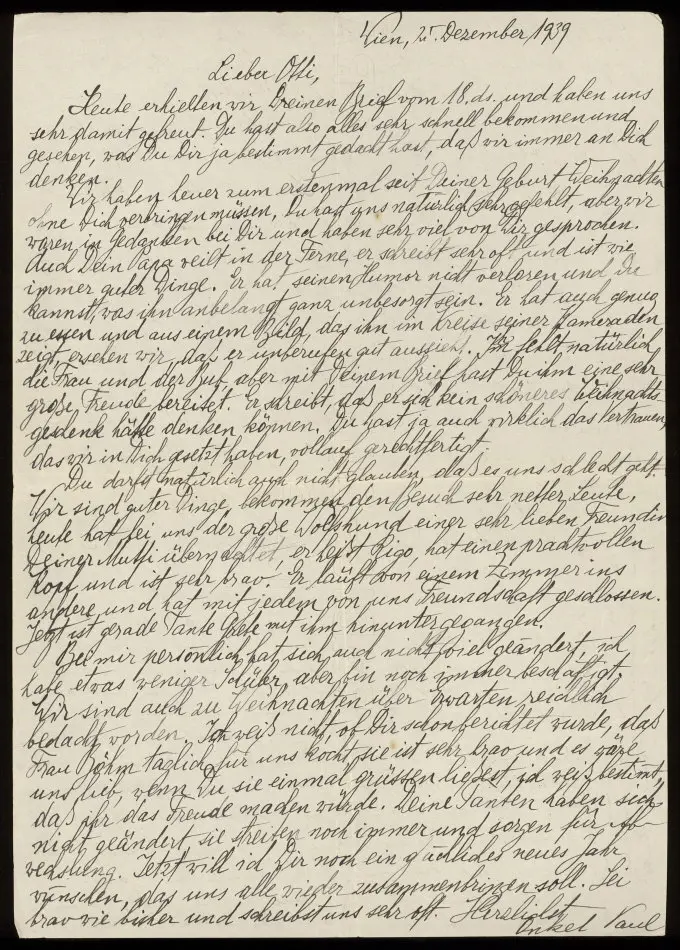 Wien, 25. Dezember 1939
Lieber Otti,
Heute erhielten wir Deinen Brief vom 18. ds. und haben uns
sehr damit gefreut. Du hast also alles sehr schnell bekommen und
gesehen, was Du Dir ja bestimmt gedacht hast, daß wir immer an Dich
denken.
Wir haben heuer zum erstenmal seit Deiner Geburt Weihnachten
ohne Dich verbringen müssen. Du hast uns natürlich sehr gefehlt, aber wir
waren in Gedanken bei Dir und haben sehr viel von Dir gesprochen.
Auch Dein Papa weilt in der Ferne, er schreibt sehr oft und ist wie
immer guter Dinge. Er hat seinen Humor nicht verloren und Du
kannst, was ihn anbelangt ganz unbesorgt sein. Er hat auch genug
zu essen und aus einem Bild, das ihn im Kreise seiner Kameraden
zeigt, ersehen wir, daß er unberufen gut aussieht. Ihm fehlt natürlich
die Frau und der Bub, aber mit Deinem Brief hast Du ihm eine sehr
große Freude bereitet. Er schreibt, daß er sich kein schöneres Weihnachts-
geschenk hätte denken können. Du hast ja auch wirklich das Vertrauen,
das wir in Dich gesetzt haben, vollauf gerechtfertigt.
Du darfst natürlich auch nicht glauben, daß es uns schlecht geht.
Wir sind guter Dinge, bekommen den Besuch sehr netter Leute,
heute hat bei uns der große Wolfshund einer sehr lieben Freundin
Deiner Mutti übernachtet, er heißt Rigo, hat einen prachtvollen
Kopf und ist sehr brav. Er läuft von einem Zimmer ins
andere und hat mit jedem von uns Freundschaft geschlossen.
Jetzt ist gerade Tante Grete mit ihm hinuntergegangen.
Bei mir persönlich hat sich auch nicht viel geändert, ich
habe etwas weniger Schüler, aber bin noch immer beschäftigt.
Wir sind auch zu Weihnachten über Erwarten reichlich
bedacht worden. Ich weiß nicht, ob Dir schon berichtet wurde, daß
Frau Böhm täglich für uns kocht, sie ist sehr brav und es wäre
uns lieb, wenn Du sie einmal grüssen ließest, ich weiß bestimmt,
daß ihr das Freude machen würde. Deine Tanten haben sich
nicht geändert, sie streiten noch immer und sorgen für Ab-
wechslung. Jetzt will ich Dir noch ein glückliches neues Jahr
wünschen, das uns alle wieder zusammenbringen soll. Sei
brav wie bisher und schreibst uns sehr oft. Herzlichst
Onkel Paul